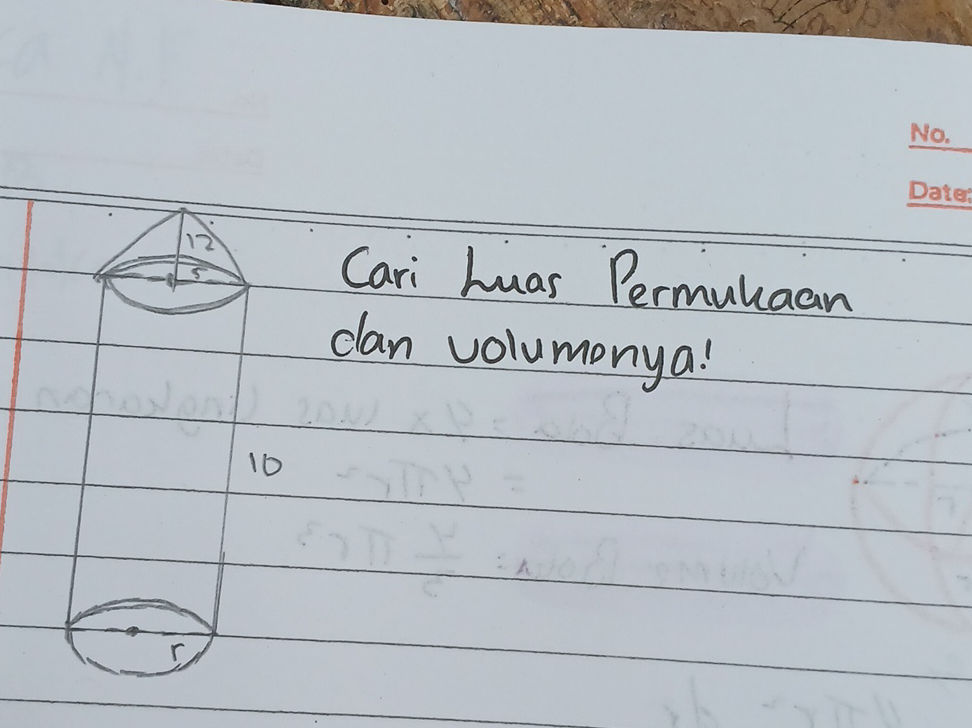 No.
Date:
12
5
Cari Luas Permukaan
dan volumenya!
10
r